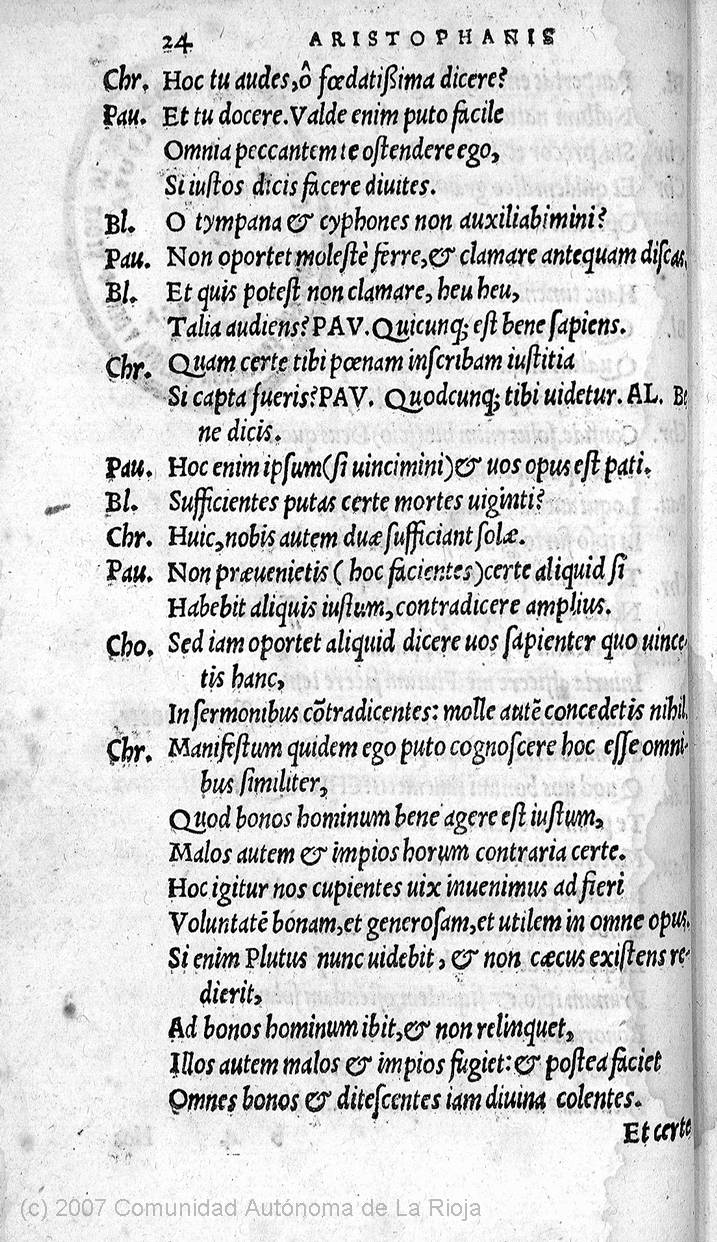 24 ARISTOPHANIS
Chr. Hoc tu audes, ô fœdatißima dicere?
Pau. Et tu docere. Valde enim puto facile
Omnia peccantem te oſtendere ego,
Si iuſtos dicis facere diuites.
Bl. O tympana & cyphones non auxiliabimini?
Pau. Non oportet moleſtè ferre, & clamare antequam diſcas.
Bl. Et quis poteſt non clamare, heu heu,
Talia audiens? PAV. Quicunq; eſt bene ſapiens.
Chr. Quam certe tibi pœnam inſcribam iuſtitia
Si capta fueris? PAV. Quodcunq; tibi uidetur. AL. Be
ne dicis.
Pau. Hoc enim ipſum (ſi uincimini) & uos opus eſt pati.
Bl. Sufficientes putas certe mortes uiginti?
Chr. Huic, nobis autem duæ ſufficiant ſolæ.
Pau. Non præuenietis ( hoc facientes) certe aliquid ſi
Habebit aliquis iuſtum, contradicere amplius.
Cho. Sed iam oportet aliquid dicere uos ſapienter quo uince-
tis hanc,
In ſermonibus cõtradicentes: molle autẽ concedetis nihil.
Chr. Manifeſtum quidem ego puto cognoſcere hoc eſſe omni-
bus ſimiliter,
Quod bonos hominum bene agere eſt iuſtum,
Malos autem & impios horum contraria certe.
Hoc igitur nos cupientes uix inuenimus ad fieri
Voluntatẽ bonam, et generoſam, et utilem in omne opus.
Si enim Plutus nunc uidebit, & non cæcus exiſtens re-
dierit,
Ad bonos hominum ibit, & non relinquet,
Illos autem malos & impios fugiet: & poſtea faciet
Omnes bonos & diteſcentes iam diuina colentes.
Et certe
(c) 2007 Comunidad Autónoma de La Rioja